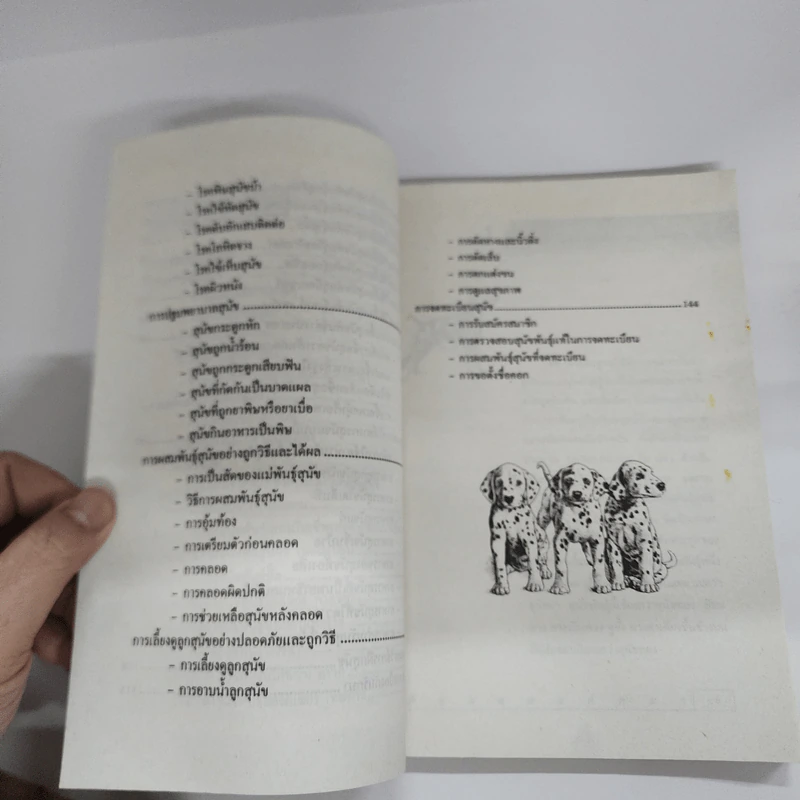 - โรคพิษสุนัขบ้า
- โรคไข้หัดสุนัข
- โรคตับอักเสบติดต่อ
- โรคโลหิตจาง
- โรคไข้เห็บสุนัข
- โรคผิวหนัง
การปฐมพยาบาลสุนัข
- สุนัขกระดูกหัก
- สุนัขถูกน้ำร้อน
- สุนัขถูกกระดูกเสียบฟัน
- สุนัขที่กัดกันเป็นบาดแผล
- สุนัขที่ถูกยาพิษหรือยาเบื่อ
- สุนัขกินอาหารเป็นพิษ
การผสมพันธุ์สุนัขอย่างถูกวิธีและได้ผล
- การเป็นสัดของแม่พันธุ์สุนัข
- วิธีการผสมพันธุ์สุนัข
- การอุ้มท้อง
- การเตรียมตัวก่อนคลอด
- การคลอด
- การคลอดผิดปกติ
- การช่วยเหลือสุนัขหลังคลอด
การเลี้ยงดูลูกสุนัขอย่างปลอดภัยและถูกวิธี
- การเลี้ยงดูลูกสุนัข
- การอาบน้ำลูกสุนัข
- การตัดหางและนิ้วติ่ง
- การตัดเล็บ
- การตกแต่งขน
- การดูแลสุขภาพ
การจดทะเบียนสุนัข 144
- การรับสมัครสมาชิก
- การตรวจสอบสุนัขพันธุ์แท้ในการจดทะเบียน
- การผสมพันธุ์สุนัขที่จดทะเบียน
- การขอตั้งชื่อคอก